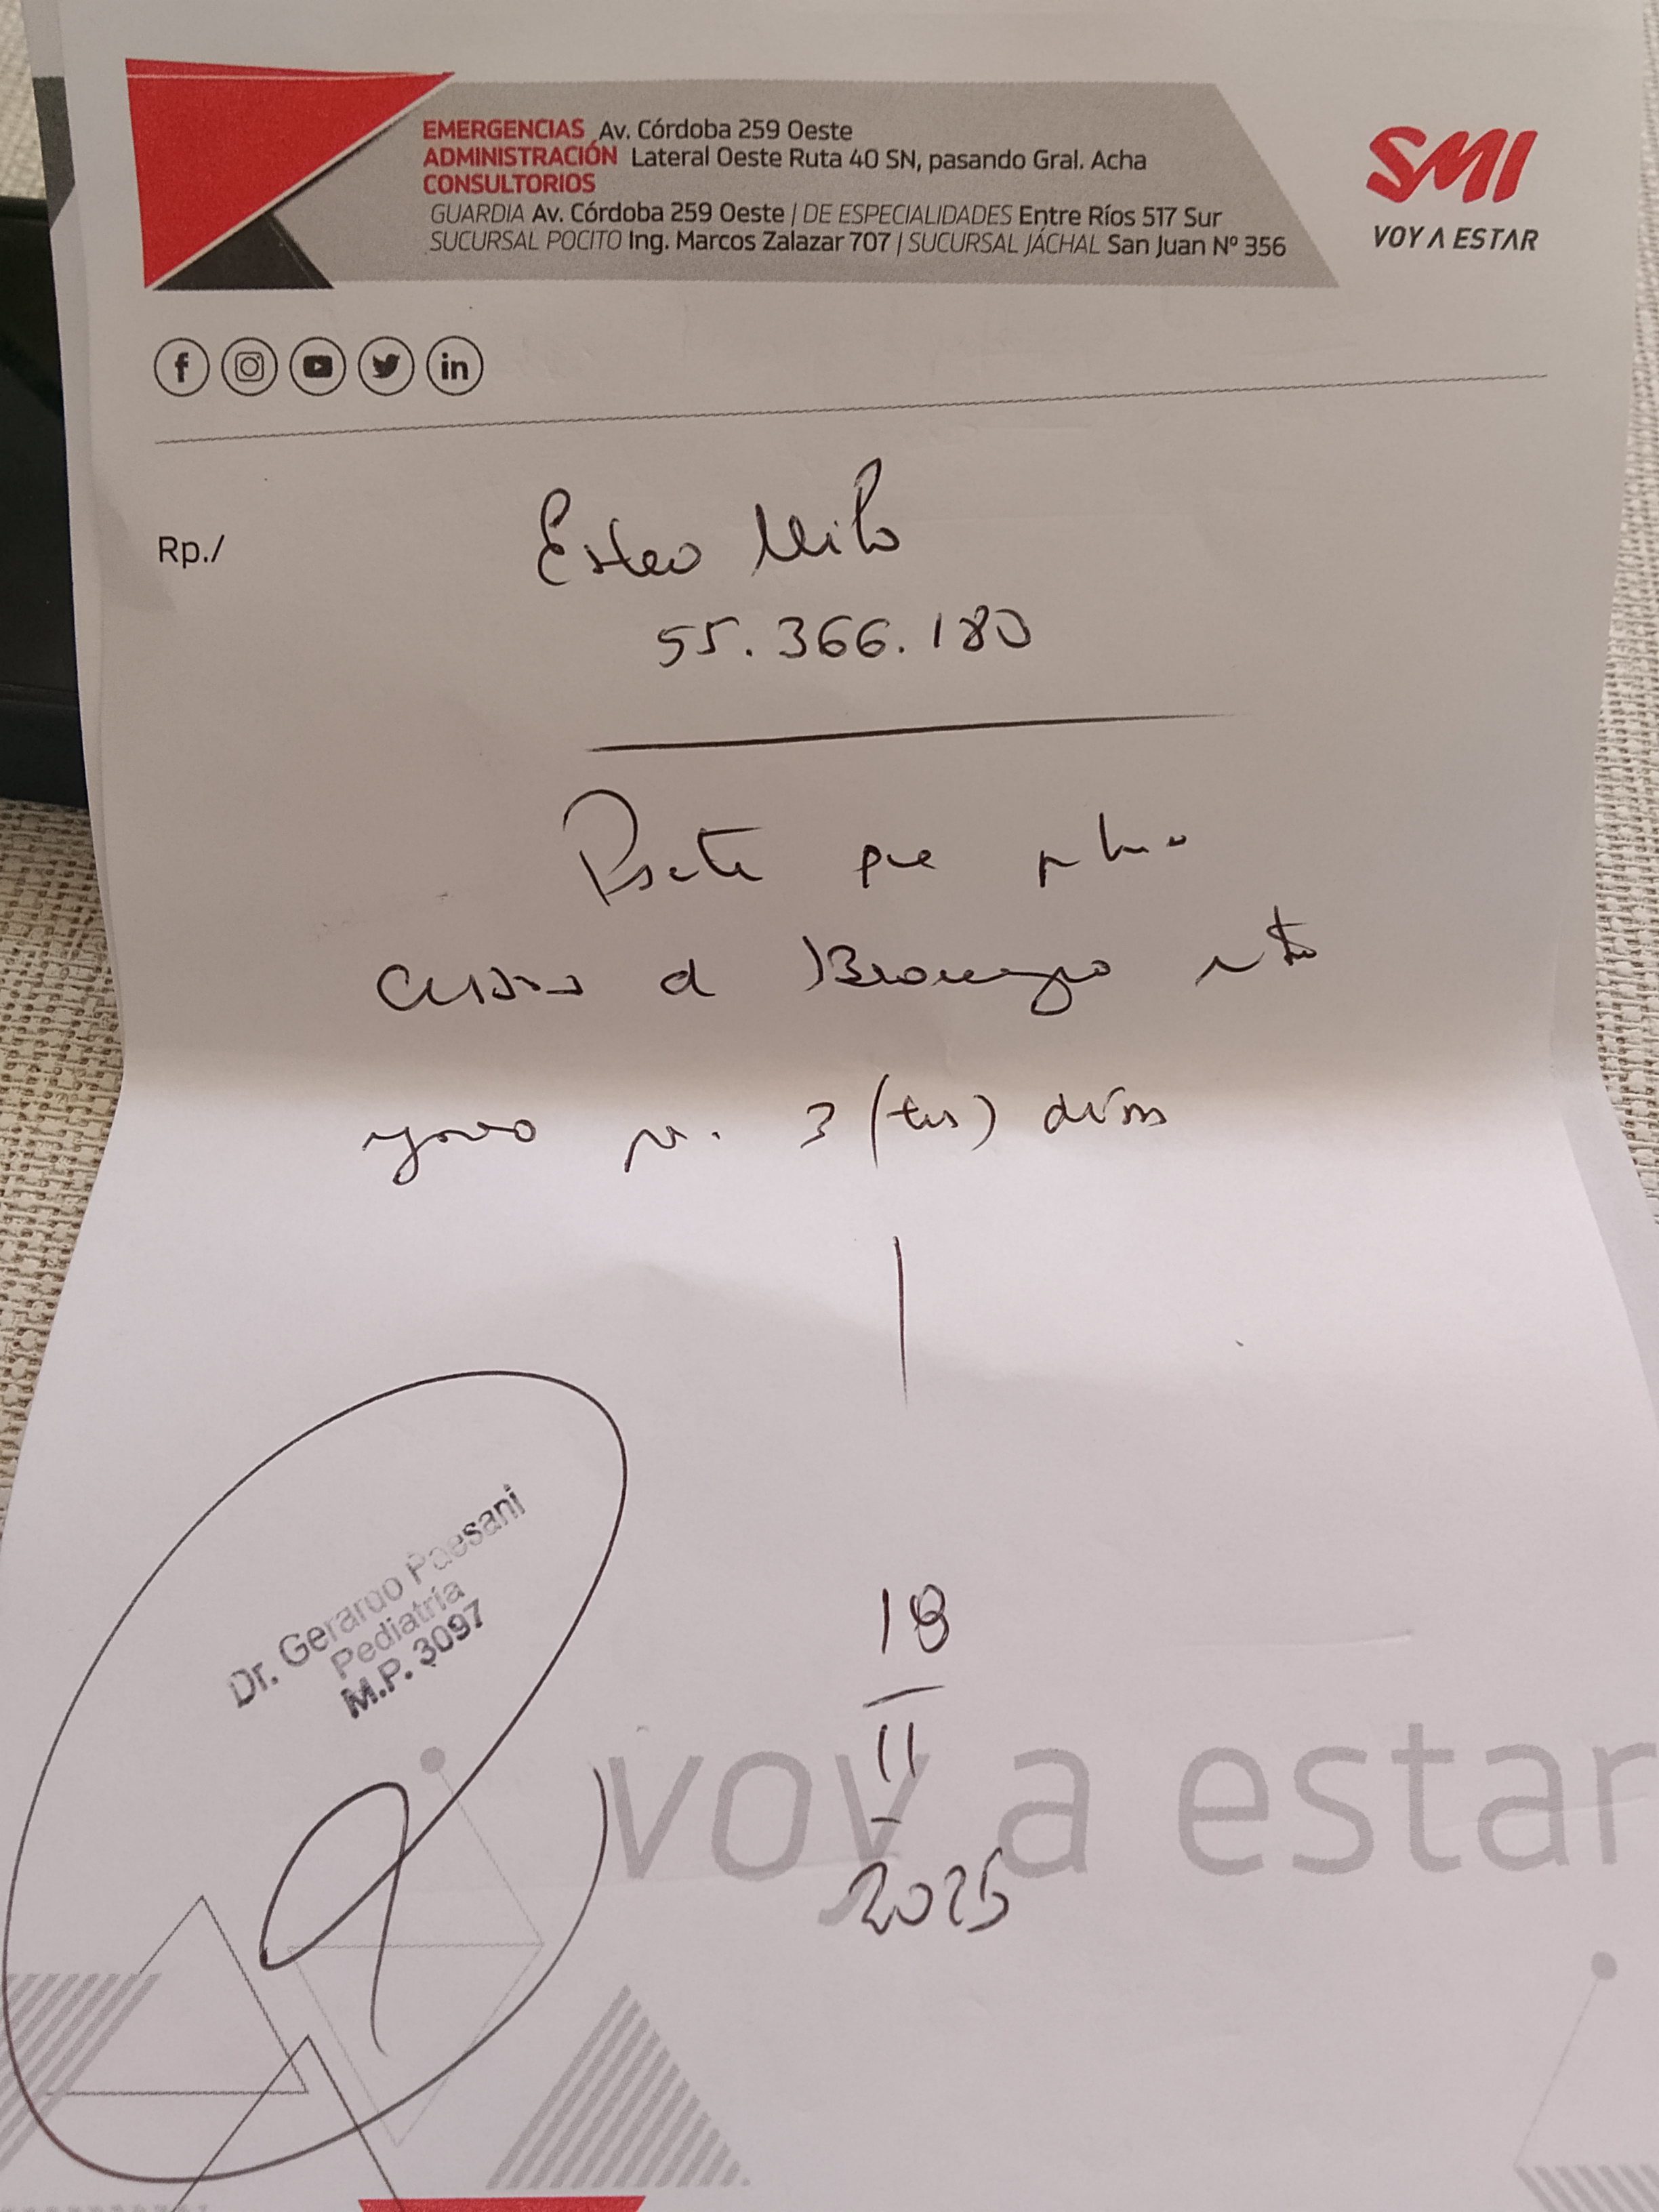 EMERGENCIAS Av. Córdoba 259 Oeste
ADMINISTRACIÓN Lateral Oeste Ruta 40 SN, pasando Gral. Acha
CONSULTORIOS
GUARDIA Av. Córdoba 259 Oeste | DE ESPECIALIDADES Entre Ríos 517 Sur
SUCURSAL POCITO Ing. Marcos Zalazar 707 | SUCURSAL JÁCHAL San Juan Nº 356
SMI
VOY A ESTAR
Rp./
Milo
55.366.180
que
3 (tres) días
Dr. Gerardo Paesani
Pediatría
M.P. 3097
18
11
2025
voy a estar